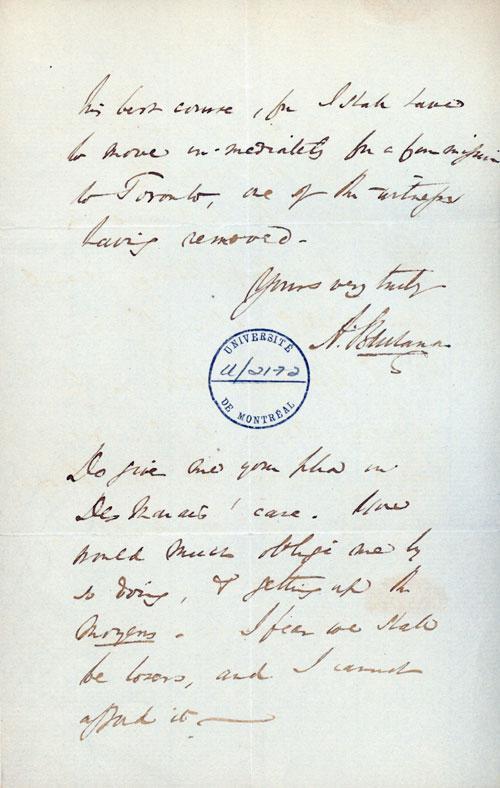 his best course, for I shall have
to move immediately for a commission
to Toronto, one of the witnesses
having removed.
Yours very truly
A.
UNIVERSITÉ
U/2172
DE MONTRÉAL
Do give me your plea in
Des Marais' case. You
would much oblige me by
so doing, & getting up the
moyens. I fear we shall
be losers, and I cannot
afford it